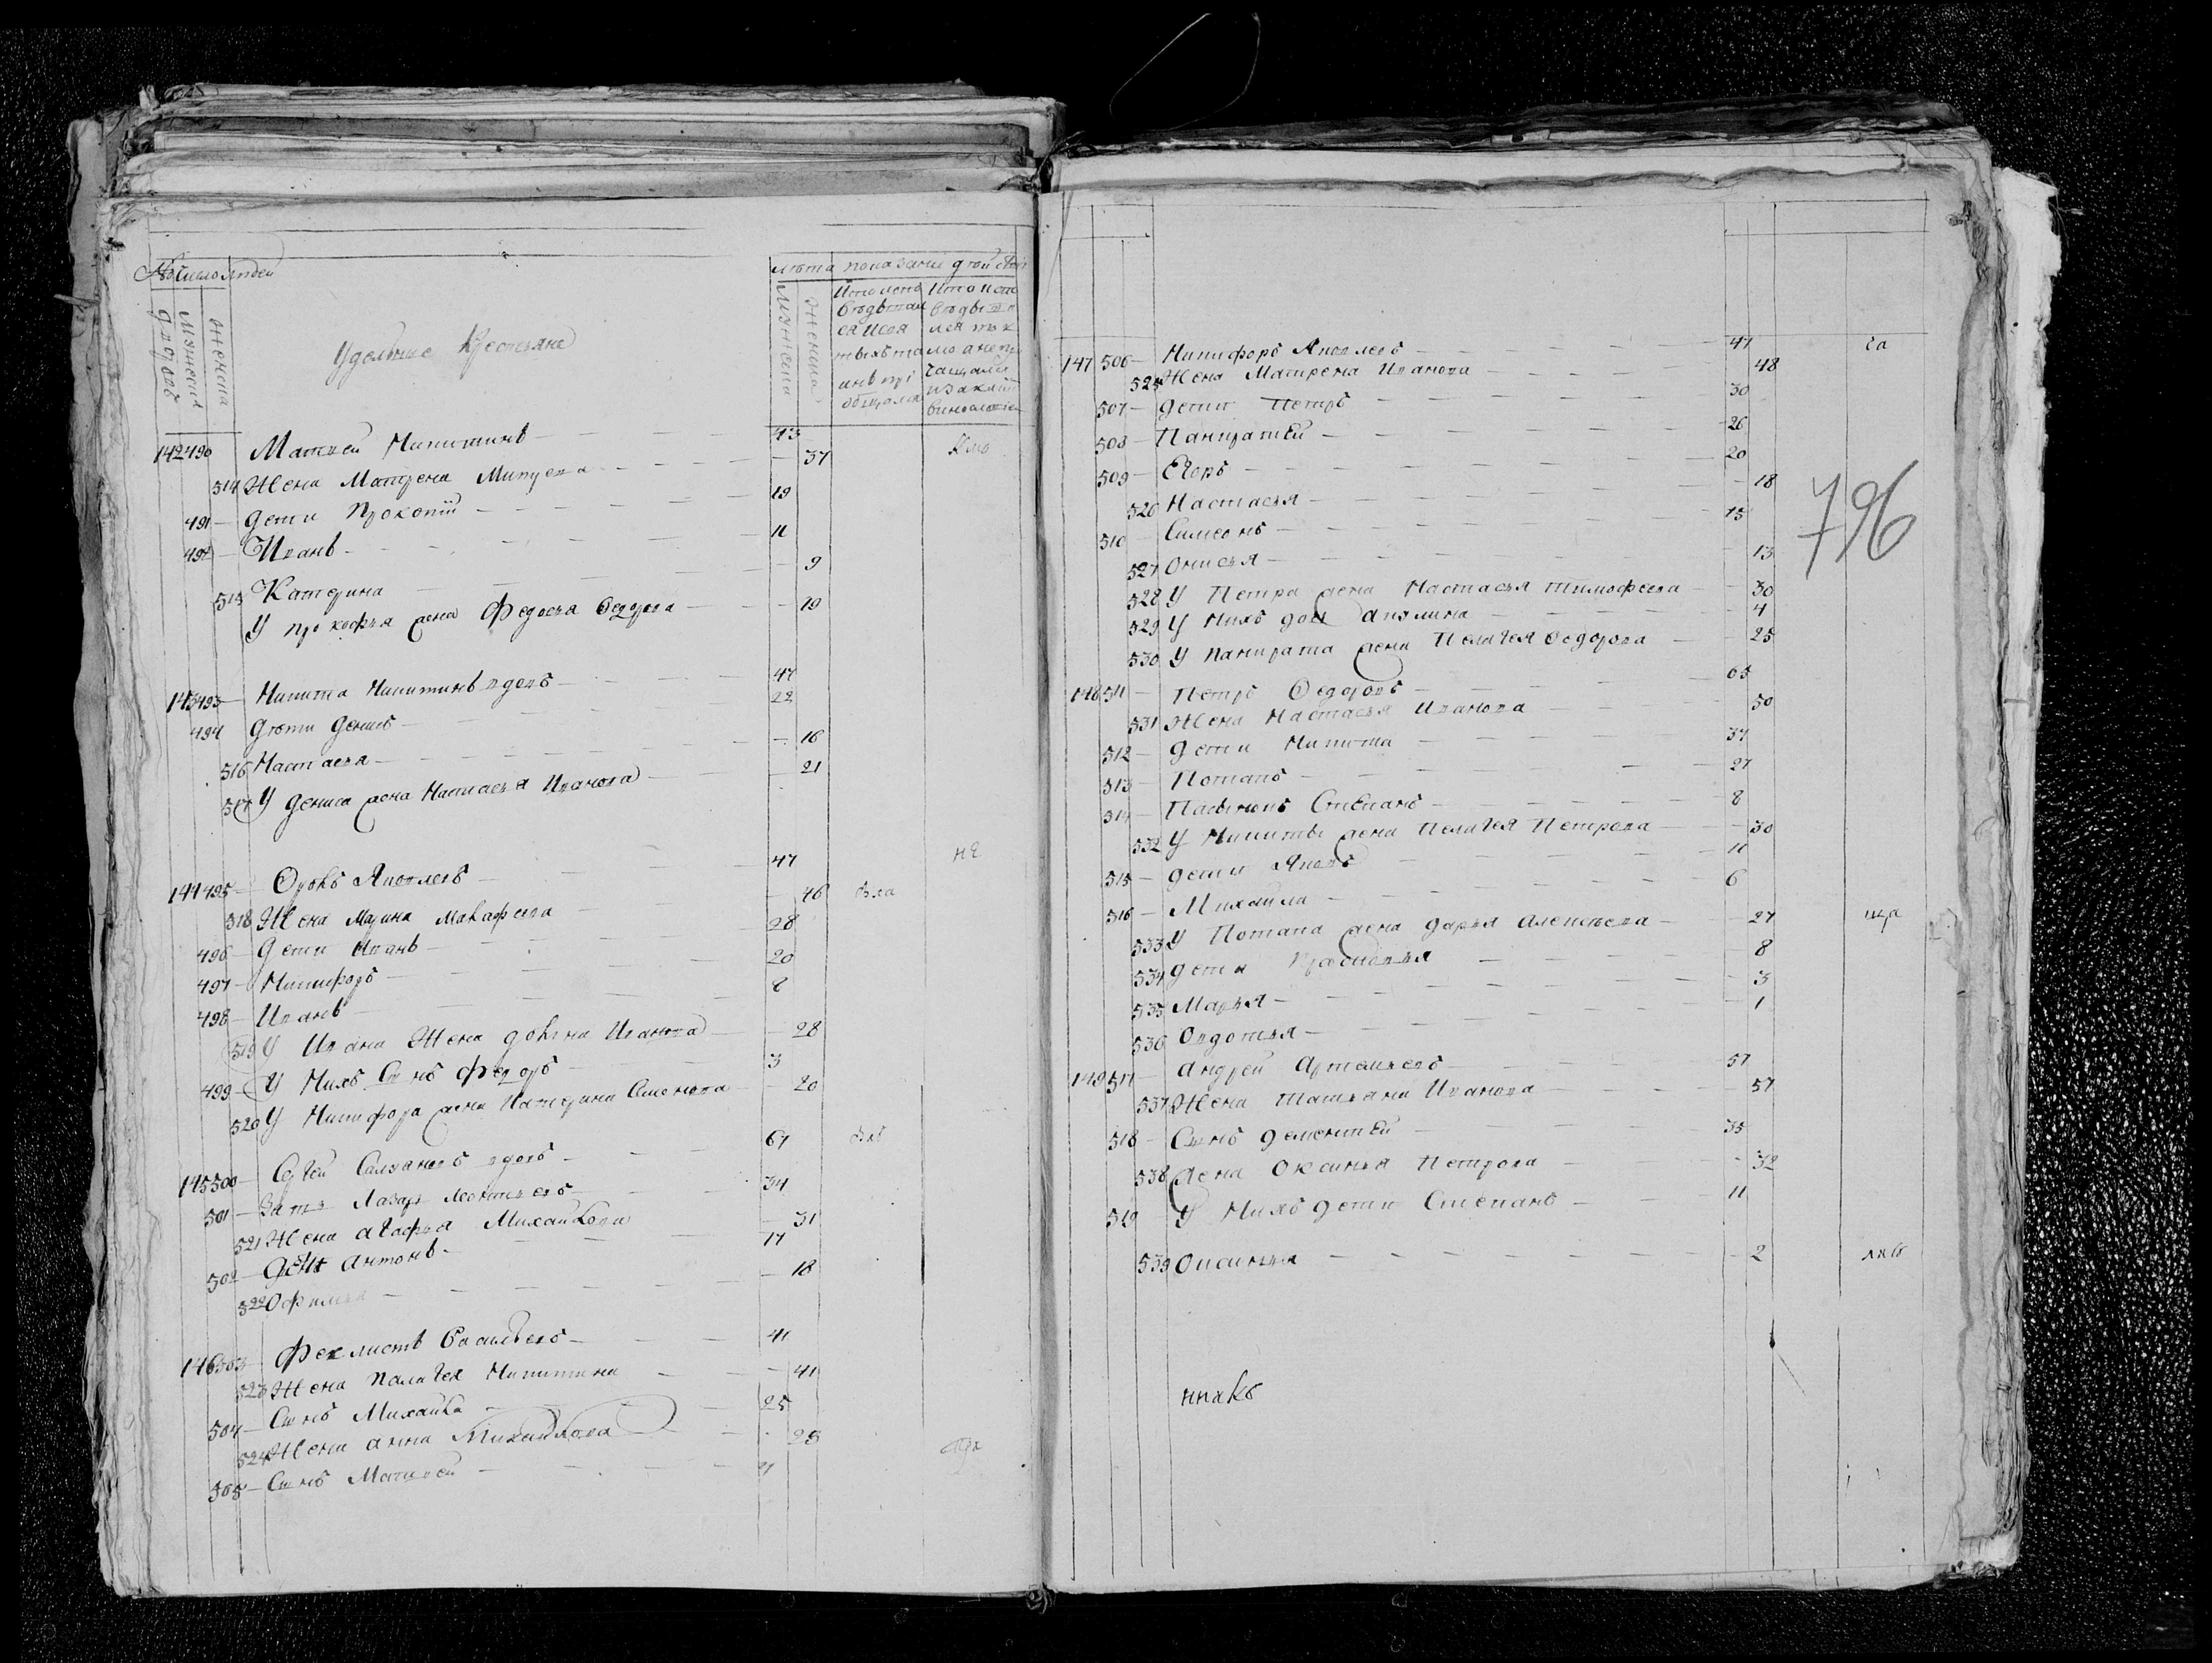 число людей
лета показание действ
дворовъ
мужеска
женска
Удельные Крестьяне
мужеска
женска
142 490 Матвей Никитинъ 43
514 Жена Матрена 37
491 дети Прокопий 19
492 Иванъ 11
515 Катерина 9
У Прокофья жена Федосья Федорова 19
143 493 Никита Никитинъ вдовъ 47
494 дети Денисъ 22
516 Настасья 16
517 У Дениса жена Настасья Иванова 21
не
144 495 Яковлевъ 47
518 Жена Марина 46
496 дети Иванъ 28
497 Никифоръ 20
498 Иванъ 8
519 У Ивана Жена Иванова 28
499 У Нихъ Сынъ Федоръ 3
520 У Никифора жена Катерина Семенова 20
145 500 Сергей вдовъ 67
501 Зять Лазарь Леонтьевъ 34
521 Жена Агафья Михайлова 31
502 дети Антонъ 17
522 18
146 503 Феклистъ Васильевъ 41
523 Жена Палагея Никитина 41
504 Сынъ Михайла 25
524 Жена Анна Михайлова 25
505 Сынъ Матвей
147 506 Никифоръ Яковлевъ 47 га
525 Жена Матрена Иванова 48
507 дети Петръ 30
508 Панкратей 26
509 Егоръ 20
526 Настасья 18
796
510 Симеонъ 15
527 Онисья 13
528 У Петра жена Настасья Тимофеева 30
529 У Нихъ дочь Акулина 4
530 У Панкрата жена Пелагея Федорова 25
148 511 Петръ Федоровъ 65
531 Жена Настасья Иванова 50
512 дети Никита 37
513 Потапъ 27
514 Пасынокъ Степанъ 8
532 У Никиты жена Пелагея Петрова 30
515 дети Яковъ 11
516 Михайла 6
533 У Потапа жена Дарья Алексеева 27
534 дети Прасковья 8
535 Марья 3
536 Овдотья 1
149 517 Андрей Артемьевъ 57
537 Жена Татьяна Иванова 57
518 Сынъ Дементей 35
538 жена Оксинья Петрова 32
519 У Нихъ дети Степанъ 11
539 Оксинья 2